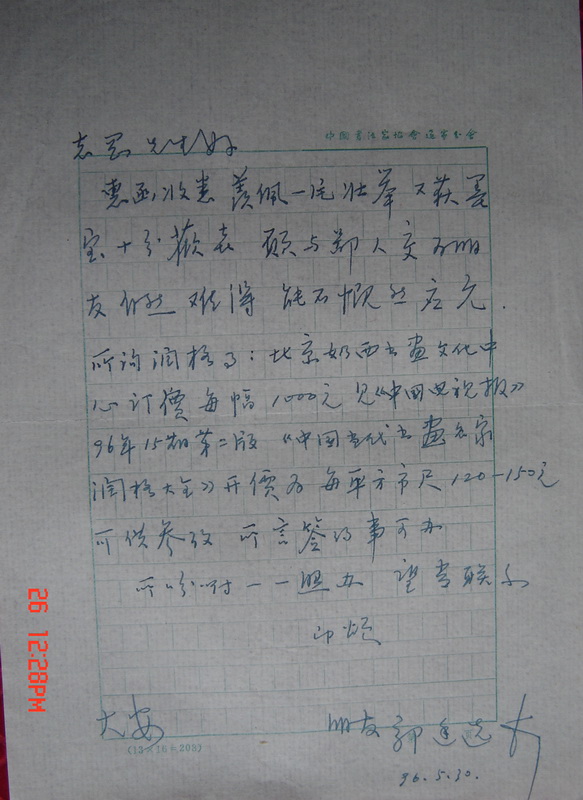 中国书法家协会
志 先生好
惠函收悉 羡佩 壮举 又获墨
宝十分欢喜 愿与鄙人交为朋
友 难得 能不慨然应允.
所询润格事：北京 西书画文化中
心订價每幅1000元见《中国电视报》
96年15期第二版《中国当代书画名家
润格大全》开價为每平方市尺120-150元
可供参考 所言签约事可办
所吩咐一一照办 望常联系
即颂
大安 朋友 郭
96.5.30.
(13×16=208)
26 12:28PM